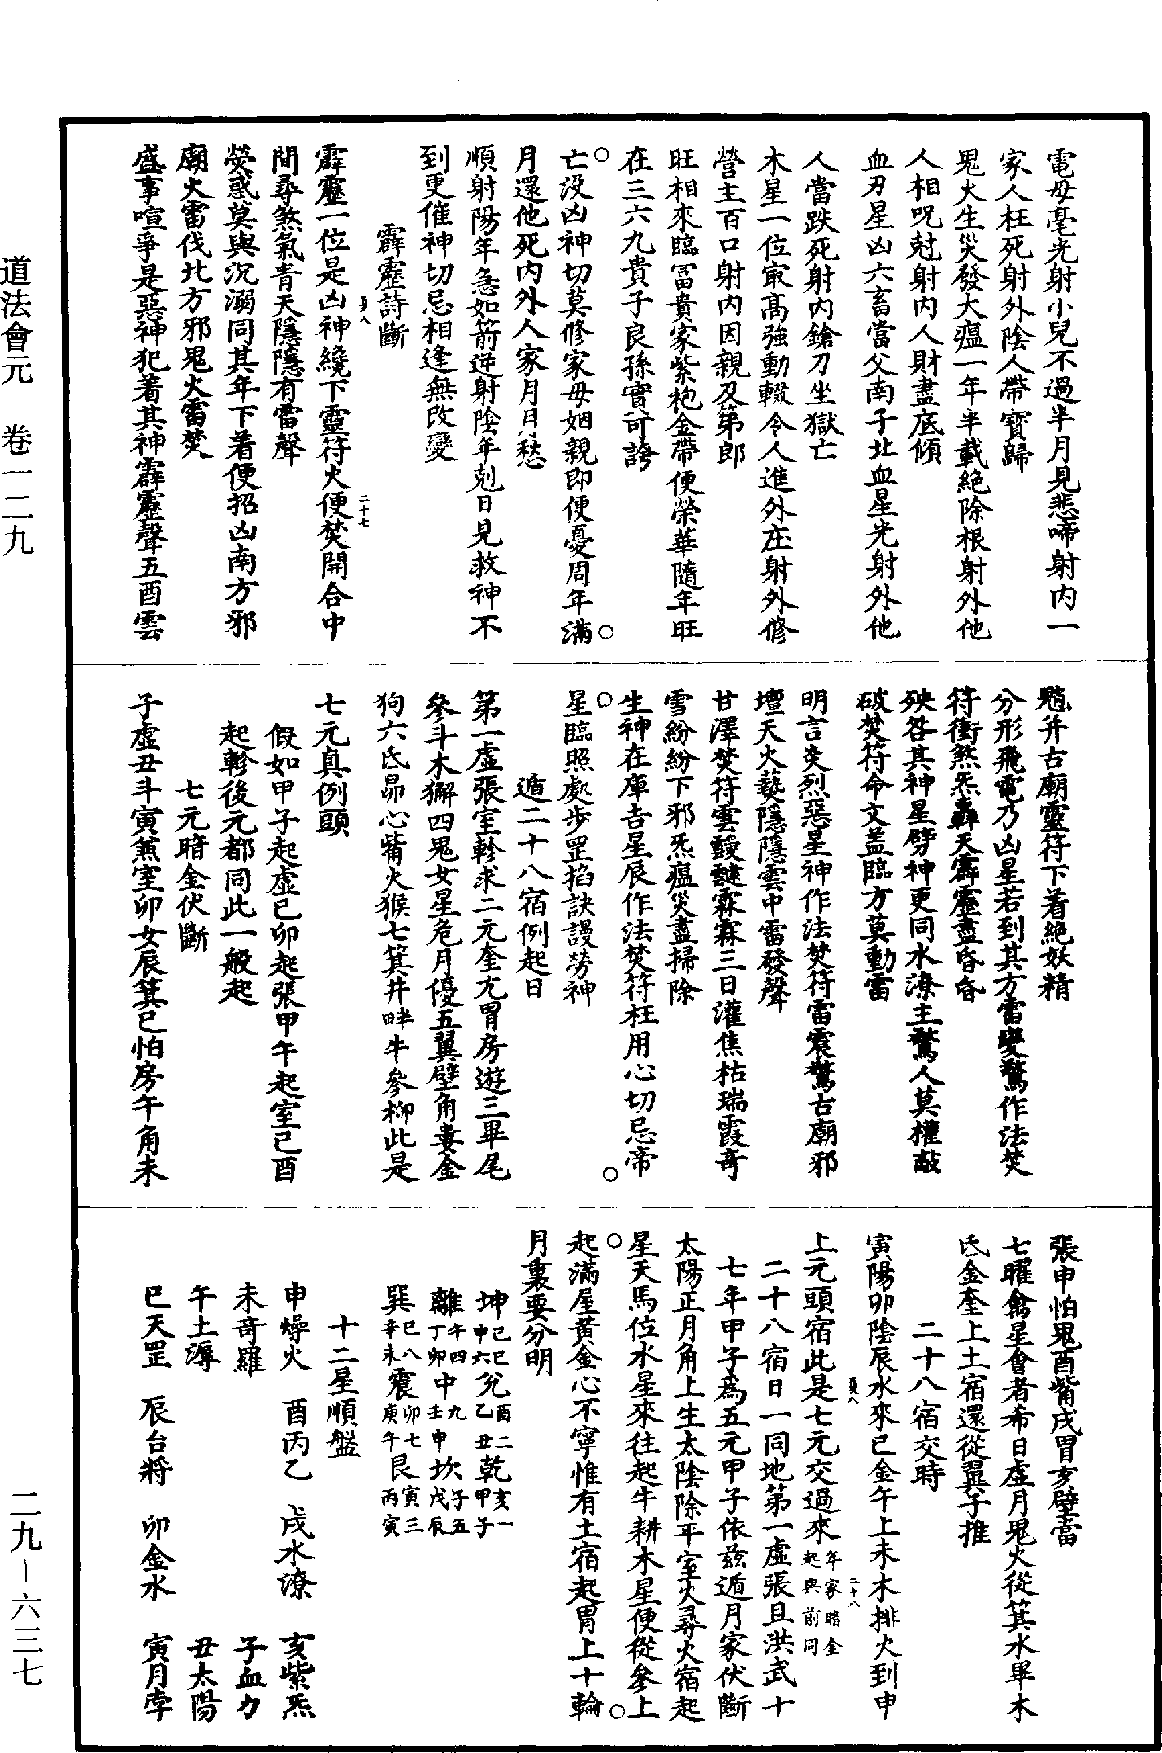 電母毫光射小兒不過半月見悲啼射內一
家人枉死射外陰人帶寶歸
鬼火生災發大瘟一年半載絕除根射外他
人相呪尅射內人財盡底傾
血刃星凶六畜當父南子北血星光射外他
人當跌死射內鎗刀坐獄亡
木星一位㝡高強動輟令人進外庄射外修
營主百口射內因親及第郎
旺相來臨冨貴家紫袍金帶便榮華隨年旺
在三六九貴子良孫實可誇
亡沒凶神切莫修家母姻親即便憂周年滿
月還他死內外人家月月愁
順射陽年急如箭逆射陰年剋日見救神不
到更催神切忌相逢無改變
霹靂詩斷
霹靂一位是凶神纔下靈符火便焚開合中
間尋煞氣青天隱隱有雷聲
熒惑莫與沉溺同其年下着便招凶南方邪
廟火雷伐北方邪鬼火雷焚
盛事喧爭是惡神犯着其神霹靂聲五酉雲
魈并古廟靈符下着絕妖精
分形飛電乃凶星若到其方雷變驚作法焚
符衝煞炁轟天霹靂盡昏昏
殃咎其神星劈神更同水潦主驚人莫權敲
破焚符命文盖臨方莫動雷
明言炎烈惡星神作法焚符雷震驚古廟邪
壇天火爇隱隱雲中雷發聲
甘澤焚符雲靉靆霖霖三日灌焦枯瑞霞奇
雪紛紛下邪炁瘟災盡掃除
生神在庫吉星辰作法焚符枉用心切忌帝
星臨照處步罡掐訣謾勞神
遁二十八宿例起日
第一虛張室軫求二元奎亢胃房遊三畢尾
參斗木獬四鬼女星危月優五翼壁角婁金
狗六氐昴心觜火猴七箕井畔牛參柳此是
七元真例頭
假如甲子起虛己卯起張甲午起室己酉
起軫後元都同此一般起
七元暗金伏斷
子虛丑斗寅煞室卯女辰箕巳怕房午角未
張申怕鬼酉觜戌胃亥壁當
七曜禽星會者希日虛月鬼火從箕水畢木
氐金奎上土宿還從翼子推
二十八宿交時
寅陽卯陰辰水來巳金午上未木排火到申
上元頭宿此是七元交過來年家暗金起與前同
二十八宿日一同地第一虛張且洪武十
七年甲子為五元甲子依茲遁月家伏斷
太陽正月角上生太陰除平室火尋火宿起
星天馬位水星來往起牛耕木星便從參上
起滿屋黃金心不寧惟有土宿起胃上十輪
月裏要分明
坤己巳申六兌酉二乙丑乾亥一甲子
離午四丁卯中九壬申坎子五戊辰
巽巳八辛未震卯七庚午艮寅三丙寅
十二星順盤
申燥火　酉丙乙　戌水潦　亥紫炁
未奇羅　　　　　　　　　子血刃
午土溽　　　　　　　　　丑太陽
巳天罡　辰台將　卯金水　寅月孛
道法會元　卷一二九
二九—六三七